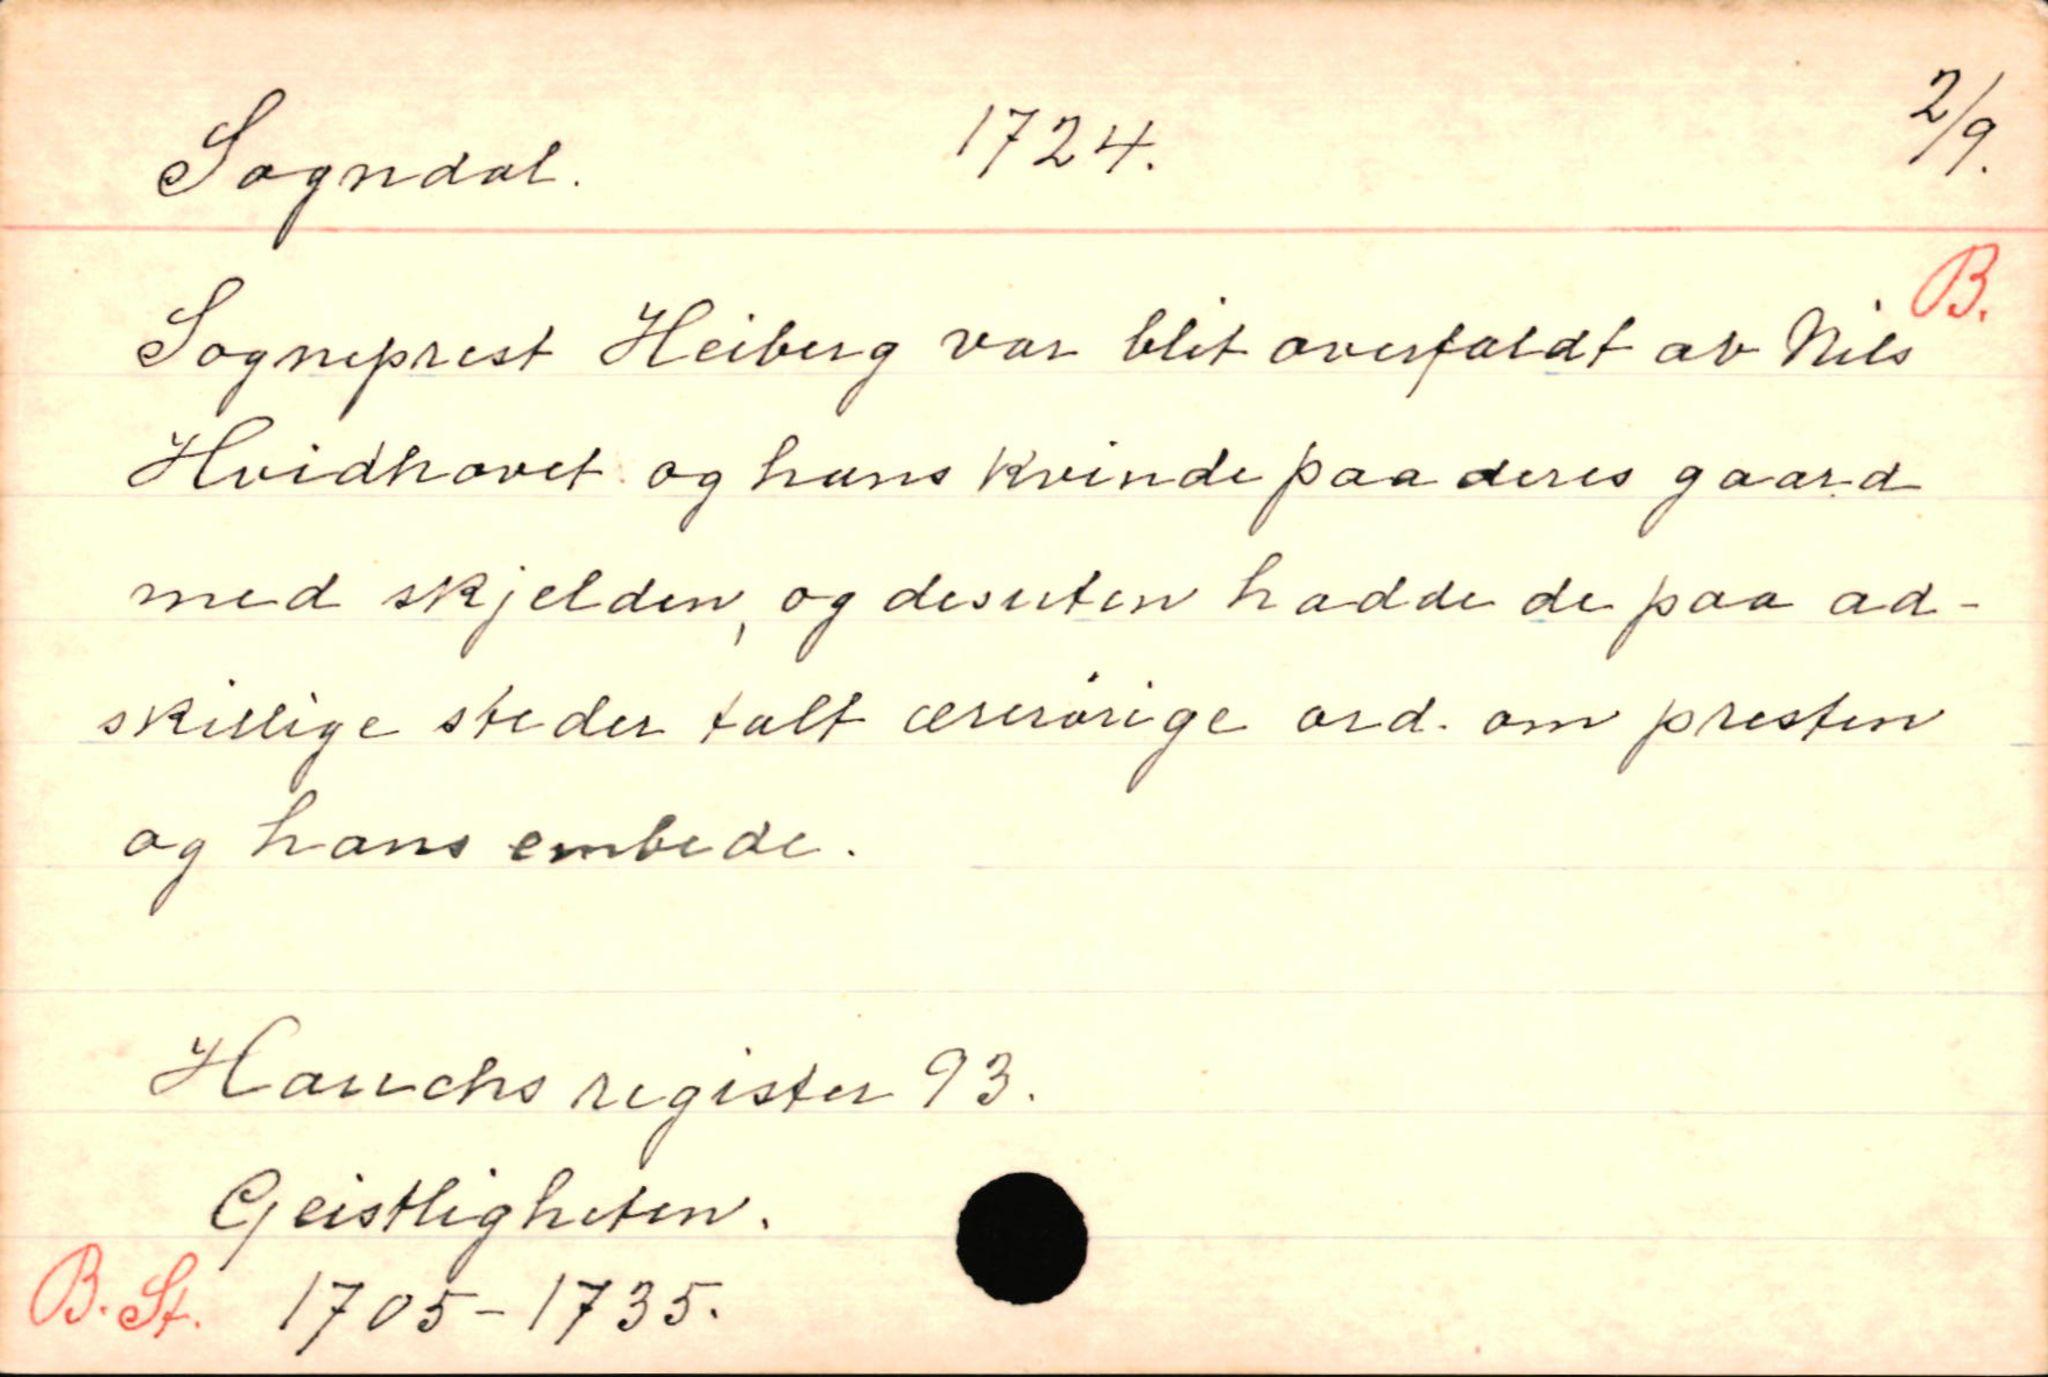 Sogndal. 1724. 2/9.
B.
Sogneprest Heiberg var blit overfaldt av Nils
Hvidhovet og hans kvinde paa deres gaard
med skjelden, og desuten hadde de paa ad-
skillige steder talt ærerørige ord om presten
og hans embede.
Hauchs register 93.
Geistligheten.
B. St. 1705-1735.